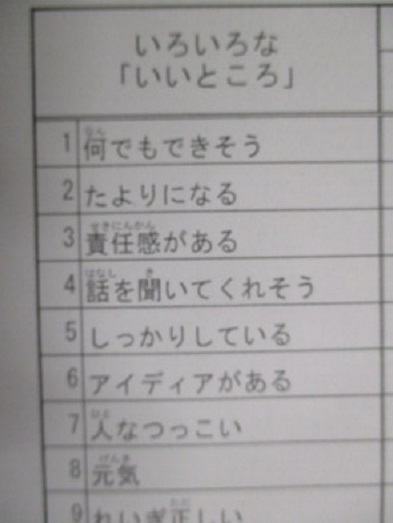 いろいろな
「いいところ」
1 何でもできそう
2 たよりになる
3 責任感がある
4 話を聞いてくれそう
5 しっかりしている
6 アイディアがある
7 人なつっこい
8 元気
9 れいぎ正しい